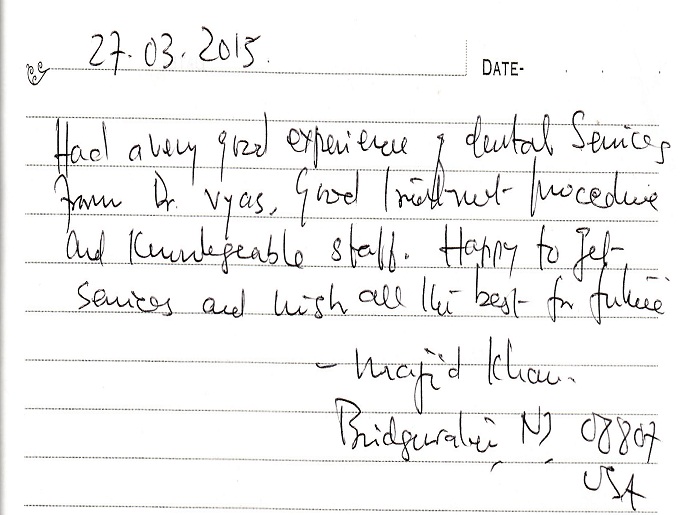 27.03.2015.
DATE-
Had a very good experience of dental Services
from Dr. Vyas, Good treatment procedure
and Knowlegeable staff. Happy to get
services and wish all the best for future
- Majid Khan.
Bridgewater NJ 08807
USA